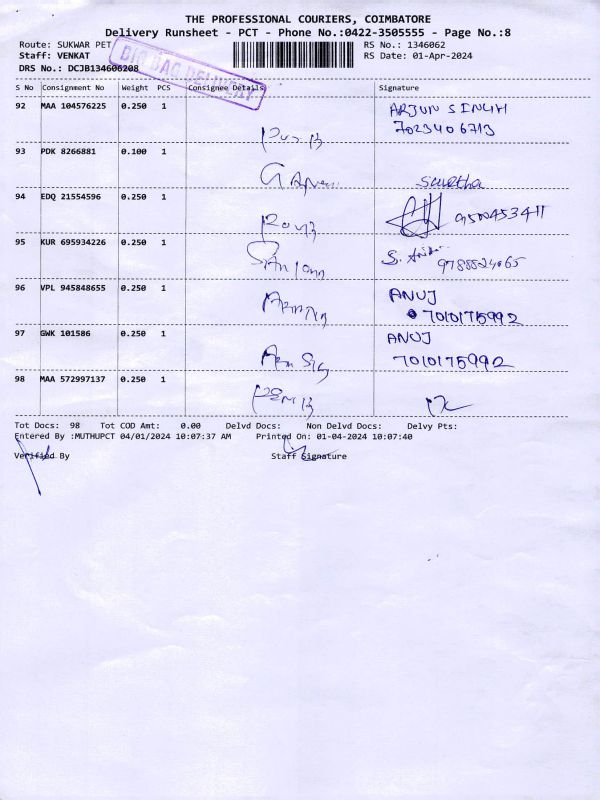 THE PROFESSIONAL COURIERS, COIMBATORE
Delivery Runsheet - PCT - Phone No.:0422-3505555 - Page No.:8
Route: SUKWAR PET
RS No.: 1346062
Staff: VENKAT
RS Date: 01-Apr-2024
DRS No.: DCJB134606208
BIG BAG DELIVERY
S No Consignment No Weight PCS Consignee Details Signature
92 MAA 104576225 0.250 1 ARJUN SINGH
7023406713
93 PDK 8266881 0.100 1 Swetha
94 EDQ 21554596 0.250 1 9500453411
95 KUR 695934226 0.250 1 S.
9788524065
96 VPL 945848655 0.250 1 ANUJ
7010175992
97 GWK 101586 0.250 1 ANUJ
7010175992
98 MAA 572997137 0.250 1
Tot Docs: 98 Tot COD Amt: 0.00 Delvd Docs: Non Delvd Docs: Delvy Pts:
Entered By :MUTHUPCT 04/01/2024 10:07:37 AM Printed On: 01-04-2024 10:07:40
Verified By Staff Signature